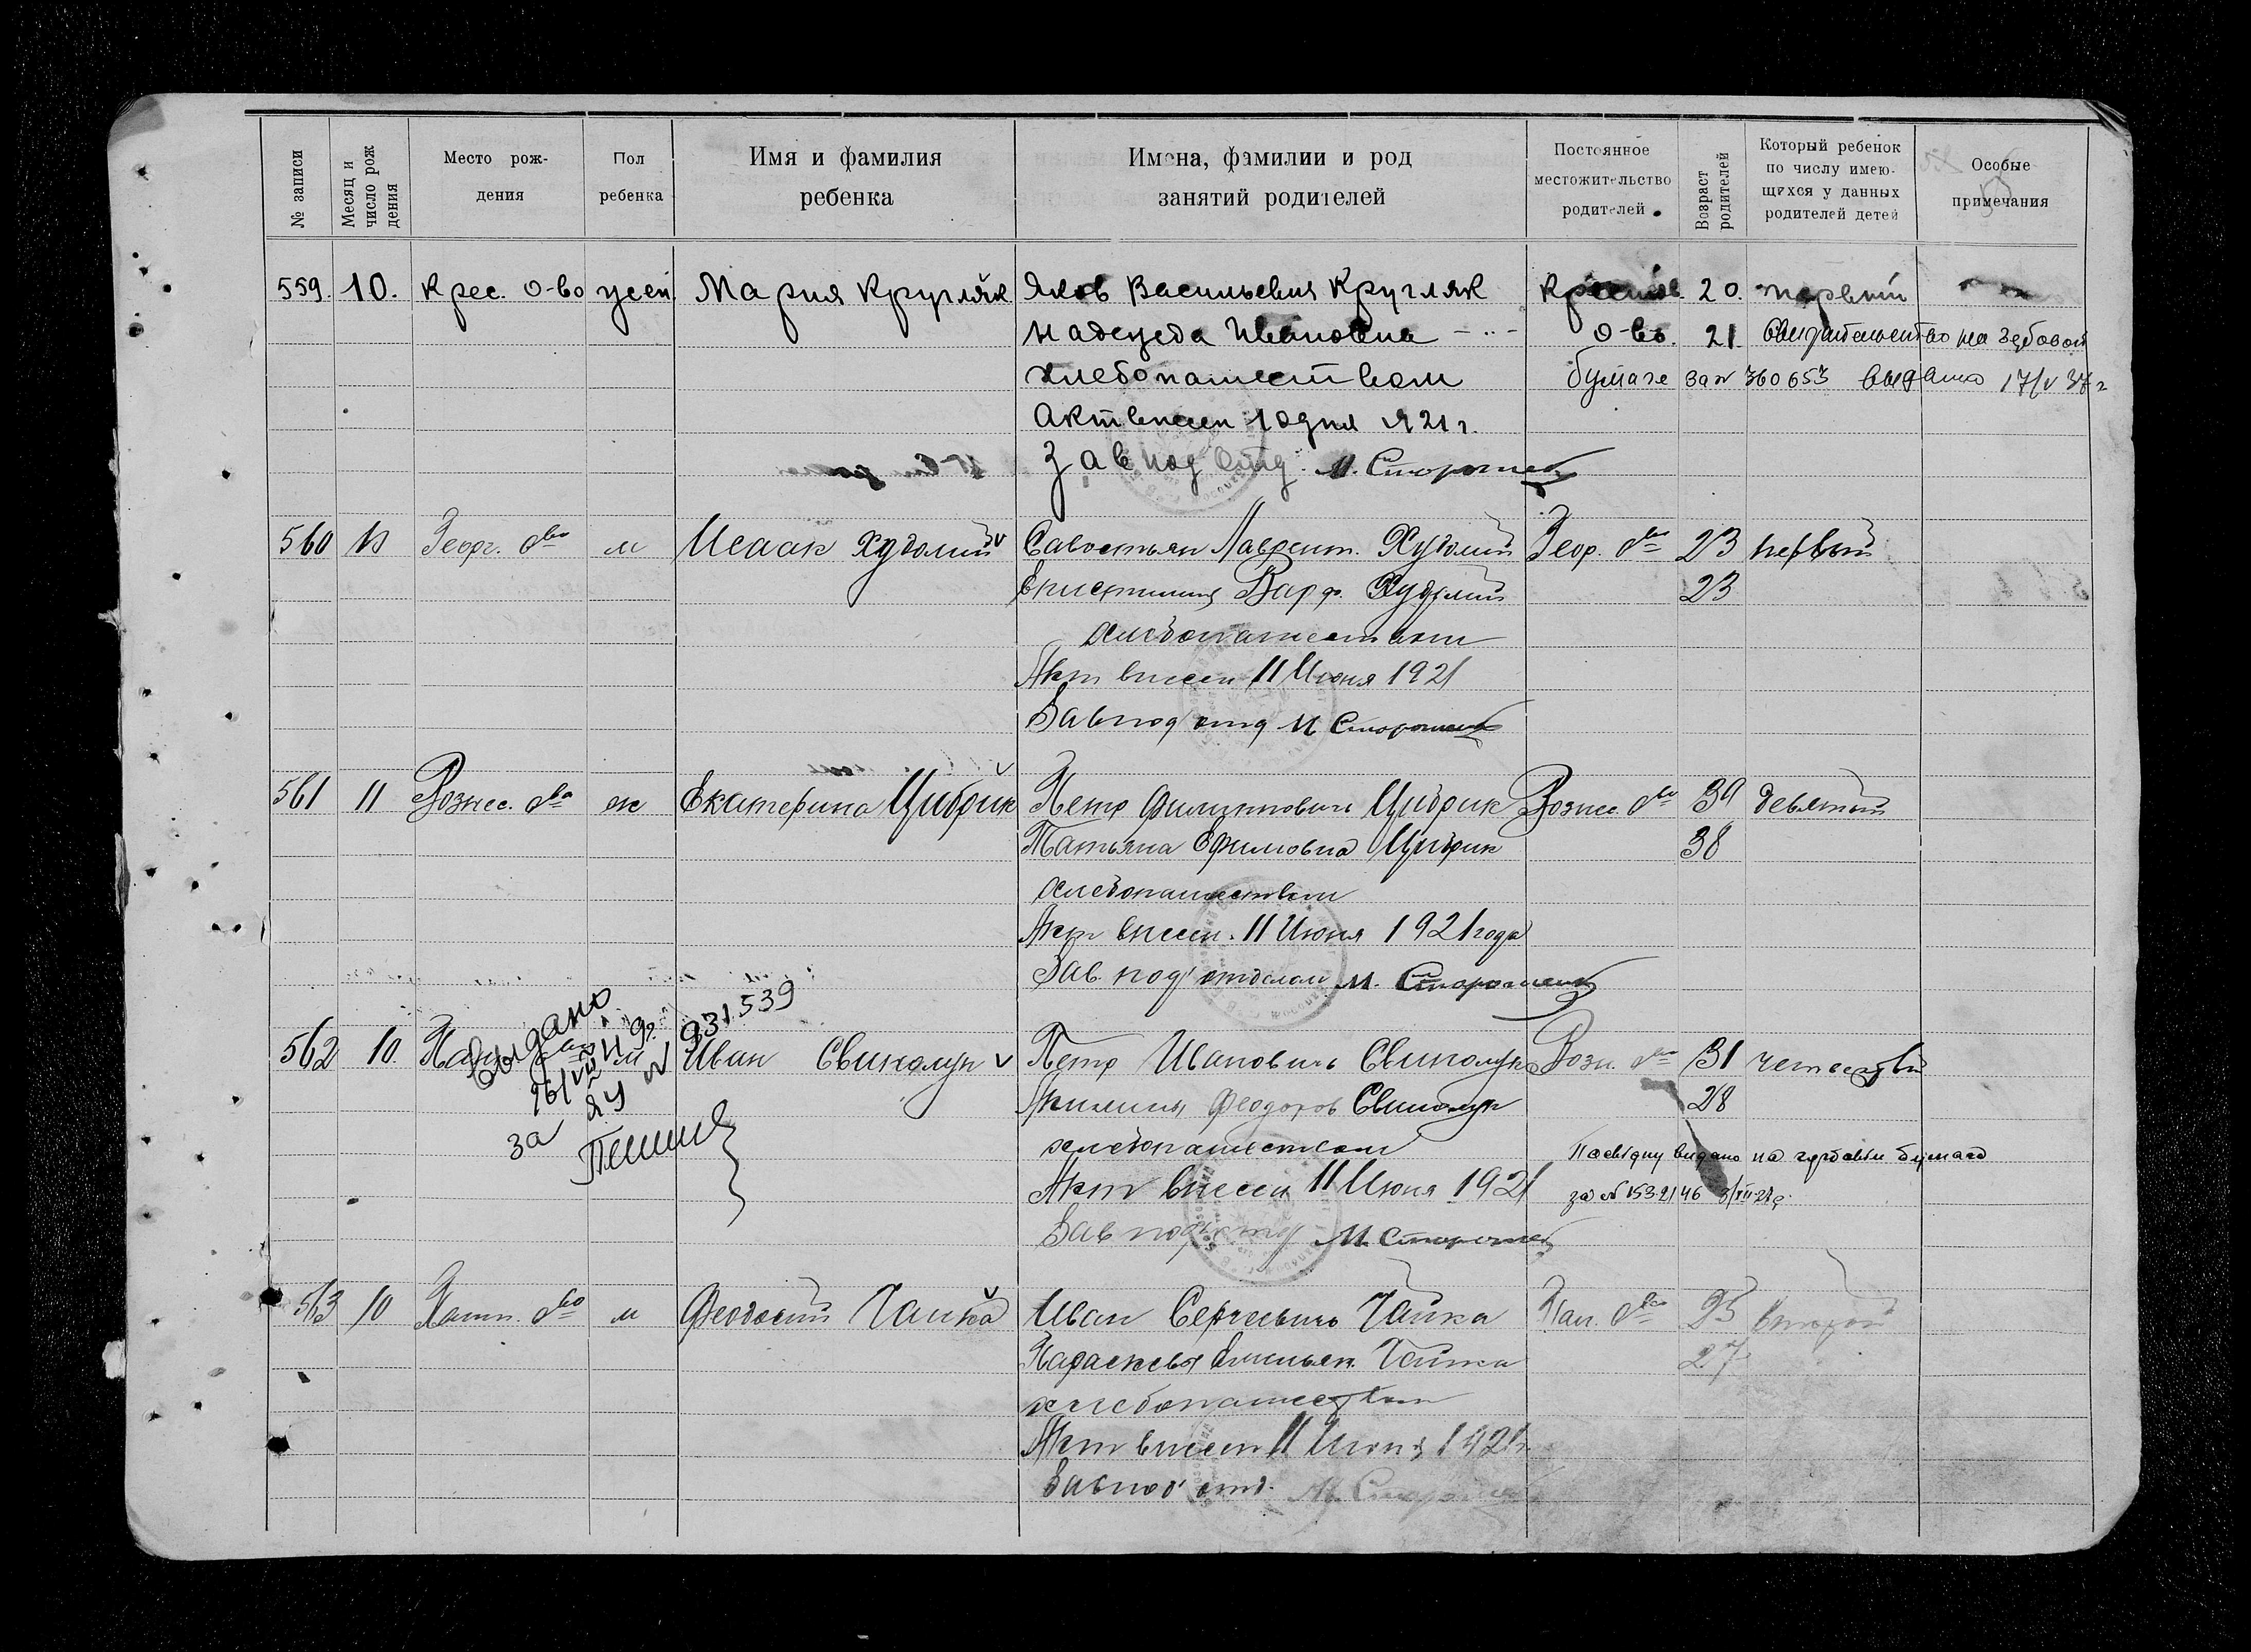 № записи
Месяц и число рож дения
Место рож- дения
Пол ребенка
Имя и фамилия ребенка
Имена, фамилии и род занятий родителей
Постоянное местожительство родителей
Возраст родителей
Который ребенок по числу имею- щихся у данных родителей детей
Особые примечания
559. 10. Крес. о-во Мария Кругляк Яков Васильевич Кругляк 20. первый
Надежда Ивановна — „ — о-во. 21. Свидетельство на гербовой
хлебопашеством бумаге за № 360653 выдано 17/V 37 г
Акт внесен 10 дня 1921 г.
Зав под отд. М. Стороженко
560 Геор. о-во м Исаак Худолий Савостьян Лаврент. Худолий Геор. о-во 23 первый
Варф. Худолий 23
хлебопашеством
Акт внесен 11 Июня 1921
Зав под отд М Стороженко
561 11 Вознес. о-во ж Екатерина Цибрик Петр Филиппович Цибрик Вознес. о-во 39 девятый
Татьяна Ефимовна Цибрик 38
хлебопашеством
Акт внесен. 11 Июня 1921 года
Зав. под отделом М. Стороженко
Выдано
931.539
562 10. м Иван Свинолуп Петр Иванович Свинолуп Возн. о-во 31 четвертый
Акилина Феодоров Свинолуп 28
за ЯЧ №
хлебопашеством Посвідку видано на гербовім бумазі
Акт внесен 11 Июня 1921 за № 1532146
Зав под отд М. Стороженко
563 10 о-во м Феодосий Чайка Иван Сергеевич Чайка о-во 25 второй
Параскевья Емельян. Чайка 27
хлебопашеством
Акт внесен 11 Июня 1921 г.
Зав под отд. М. Стороженко